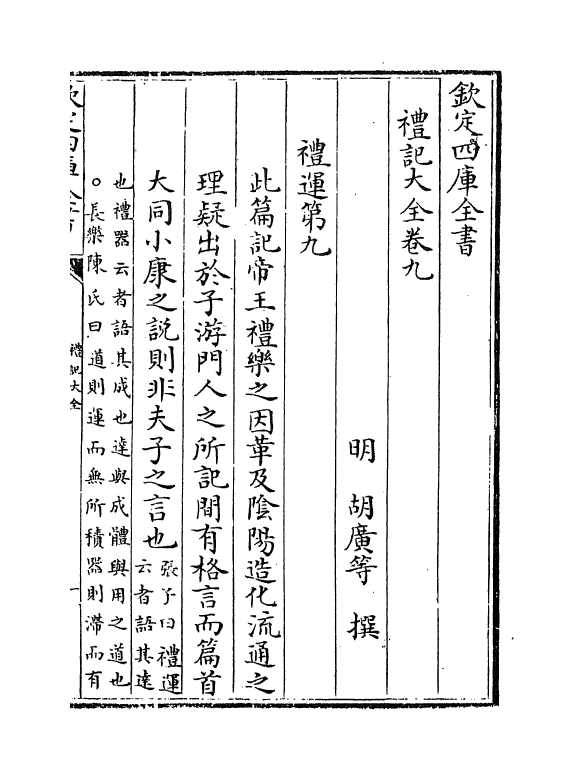 欽定四庫全書
禮記大全卷九
明 胡廣等 撰
禮運第九
此篇記帝王禮樂之因革及陰陽造化流通之
理疑出於子游門人之所記間有格言而篇首
大同小康之說則非夫子之言也
張子曰禮運
云者語其達
也禮器云者語其成也達與成體與用之道也
○長樂陳氏曰道則運而無所積器則滯而有
欽定四庫全書
禮記大全
一